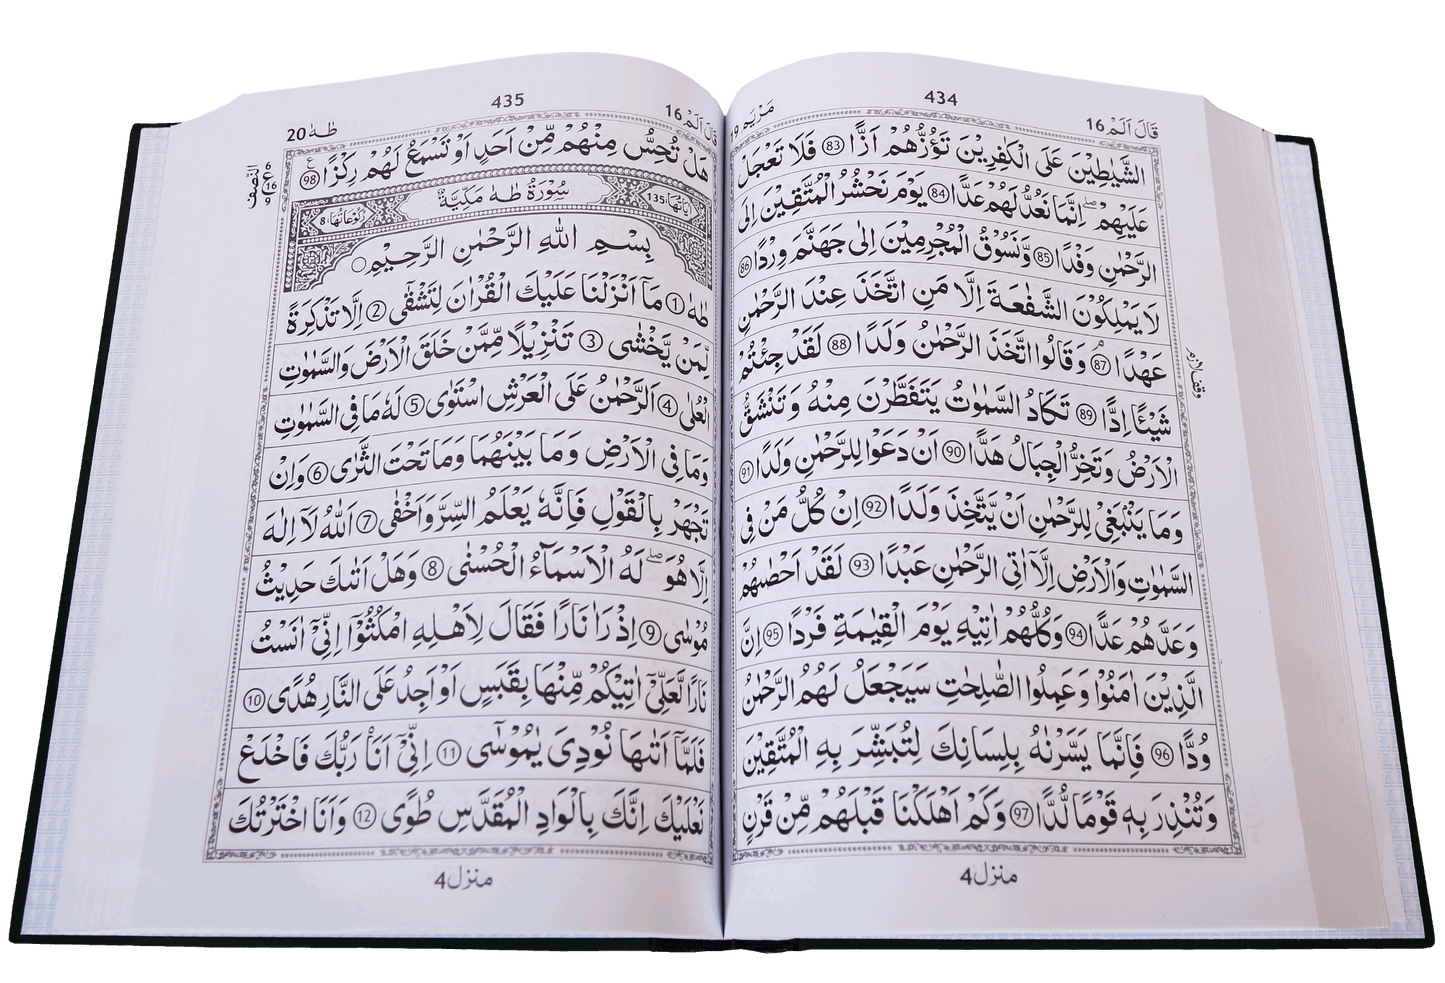 434
قَالَ اَلَمْ 16
مَرْيَم 19
الشَّيٰطِيْنَ عَلَى الْكٰفِرِيْنَ تَؤُزُّهُمْ اَزًّا 83 فَلَا تَعْجَلْ
عَلَيْهِمْ ؕ اِنَّمَا نَعُدُّ لَهُمْ عَدًّا 84 يَوْمَ نَحْشُرُ الْمُتَّقِيْنَ اِلَى
الرَّحْمٰنِ وَفْدًا 85 وَّنَسُوْقُ الْمُجْرِمِيْنَ اِلٰى جَهَنَّمَ وِرْدًا 86
لَا يَمْلِكُوْنَ الشَّفٰعَةَ اِلَّا مَنِ اتَّخَذَ عِنْدَ الرَّحْمٰنِ
عَهْدًا 87 وَقَالُوا اتَّخَذَ الرَّحْمٰنُ وَلَدًا 88 لَقَدْ جِئْتُمْ
شَيْـًٔا اِدًّا 89 تَكَادُ السَّمٰوٰتُ يَتَفَطَّرْنَ مِنْهُ وَتَنْشَقُّ
الْاَرْضُ وَتَخِرُّ الْجِبَالُ هَدًّا 90 اَنْ دَعَوْا لِلرَّحْمٰنِ وَلَدًا 91
وَمَا يَنْۢبَغِيْ لِلرَّحْمٰنِ اَنْ يَّتَّخِذَ وَلَدًا 92 اِنْ كُلُّ مَنْ فِي
السَّمٰوٰتِ وَالْاَرْضِ اِلَّاۤ اٰتِي الرَّحْمٰنِ عَبْدًا 93 لَقَدْ اَحْصٰىهُمْ
وَعَدَّهُمْ عَدًّا 94 وَكُلُّهُمْ اٰتِيْهِ يَوْمَ الْقِيٰمَةِ فَرْدًا 95 اِنَّ
الَّذِيْنَ اٰمَنُوْا وَعَمِلُوا الصّٰلِحٰتِ سَيَجْعَلُ لَهُمُ الرَّحْمٰنُ
وُدًّا 96 فَاِنَّمَا يَسَّرْنٰهُ بِلِسَانِكَ لِتُبَشِّرَ بِهِ الْمُتَّقِيْنَ
وَتُنْذِرَ بِهٖ قَوْمًا لُّدًّا 97 وَكَمْ اَهْلَكْنَا قَبْلَهُمْ مِّنْ قَرْنٍ
منزل 4
435
قَالَ اَلَمْ 16
طٰهٰ 20
هَلْ تُحِسُّ مِنْهُمْ مِّنْ اَحَدٍ اَوْ تَسْمَعُ لَهُمْ رِكْزًا 98
اٰيَاتُهَا 135
سُوْرَةُ طٰهٰ مَكِّيَّةٌ
رُكُوْعَاتُهَا 8
بِسْمِ اللّٰهِ الرَّحْمٰنِ الرَّحِيْمِ
طٰهٰ 1 مَاۤ اَنْزَلْنَا عَلَيْكَ الْقُرْاٰنَ لِتَشْقٰى 2 اِلَّا تَذْكِرَةً
لِّمَنْ يَّخْشٰى 3 تَنْزِيْلًا مِّمَّنْ خَلَقَ الْاَرْضَ وَالسَّمٰوٰتِ
الْعُلٰى 4 اَلرَّحْمٰنُ عَلَى الْعَرْشِ اسْتَوٰى 5 لَهٗ مَا فِي السَّمٰوٰتِ
وَمَا فِي الْاَرْضِ وَمَا بَيْنَهُمَا وَمَا تَحْتَ الثَّرٰى 6 وَاِنْ
تَجْهَرْ بِالْقَوْلِ فَاِنَّهٗ يَعْلَمُ السِّرَّ وَاَخْفٰى 7 اَللّٰهُ لَاۤ اِلٰهَ
اِلَّا هُوَ ؕ لَهُ الْاَسْمَآءُ الْحُسْنٰى 8 وَهَلْ اَتٰىكَ حَدِيْثُ
مُوْسٰى 9 اِذْ رَاٰ نَارًا فَقَالَ لِاَهْلِهِ امْكُثُوْۤا اِنِّيْۤ اٰنَسْتُ
نَارًا لَّعَلِّيْۤ اٰتِيْكُمْ مِّنْهَا بِقَبَسٍ اَوْ اَجِدُ عَلَى النَّارِ هُدًى 10
فَلَمَّاۤ اَتٰىهَا نُوْدِيَ يٰمُوْسٰى 11 اِنِّيْۤ اَنَا رَبُّكَ فَاخْلَعْ
نَعْلَيْكَ اِنَّكَ بِالْوَادِ الْمُقَدَّسِ طُوًى 12 وَاَنَا اخْتَرْتُكَ
منزل 4